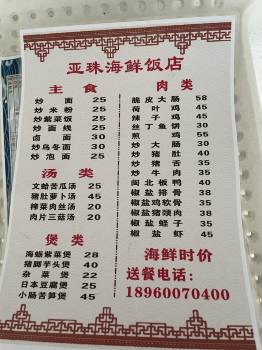 亚珠海鲜饭店
主食
炒面 25
炒米粉 25
炒紫菜饭 25
炒面线 25
卤面 30
炒乌冬面 30
炒泡面 25
汤类
文蛤苦瓜汤 25
猪肚萝卜汤 45
榨菜肉丝汤 20
肉片三菇汤 20
煲类
海蛎紫菜煲 28
猪脚芋头煲 40
杂菜煲 22
日本豆腐煲 25
小肠苦笋煲 45
肉类
脆皮大肠 58
荷叶鸡 45
辣子鸡 45
丝丁鱼饼 30
煎鸡 55
炒大肠 30
炒猪肚 35
炒猪舌 35
炒牛肉 35
闽北板鸭 40
椒盐排骨 38
椒盐鸡软骨 35
椒盐猪颈肉 38
椒盐蛏子 35
椒盐虾 45
海鲜时价
送餐电话：
18960070400